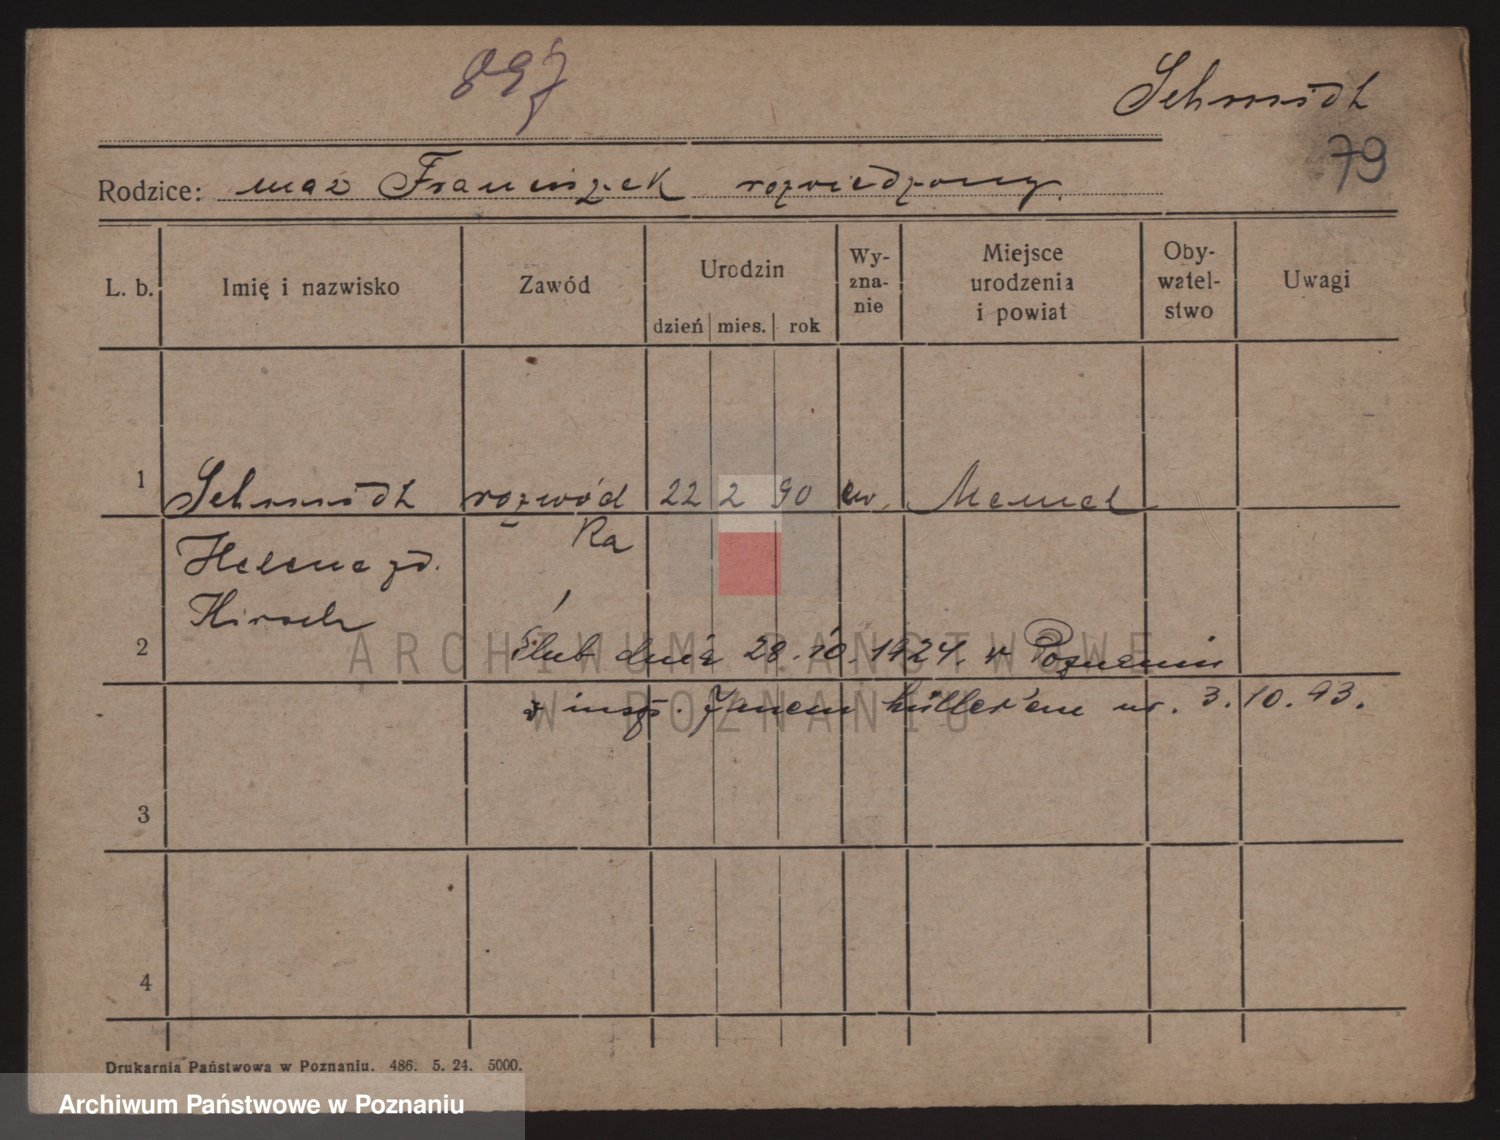 897
Schmidt
79
Rodzice: mąż Franciszek rozwiedzony.
L. b. Imię i nazwisko Zawód Urodzin Wy-zna-nie Miejsce urodzenia i powiat Oby-watel-stwo Uwagi
dzień mies. rok
1 Schmidt rozwód 22 2 90 ew. Memel
Ka
Helene zd.
Hirsch
2 Ślub dnia 28.10.1924. w Poznaniu
z insp. Janem Müller'em ur. 3.10.93.
3
4
Drukarnia Państwowa w Poznaniu. 486. 5. 24. 5000.
ARCHIWUM PAŃSTWOWE
W POZNANIU
Archiwum Państwowe w Poznaniu